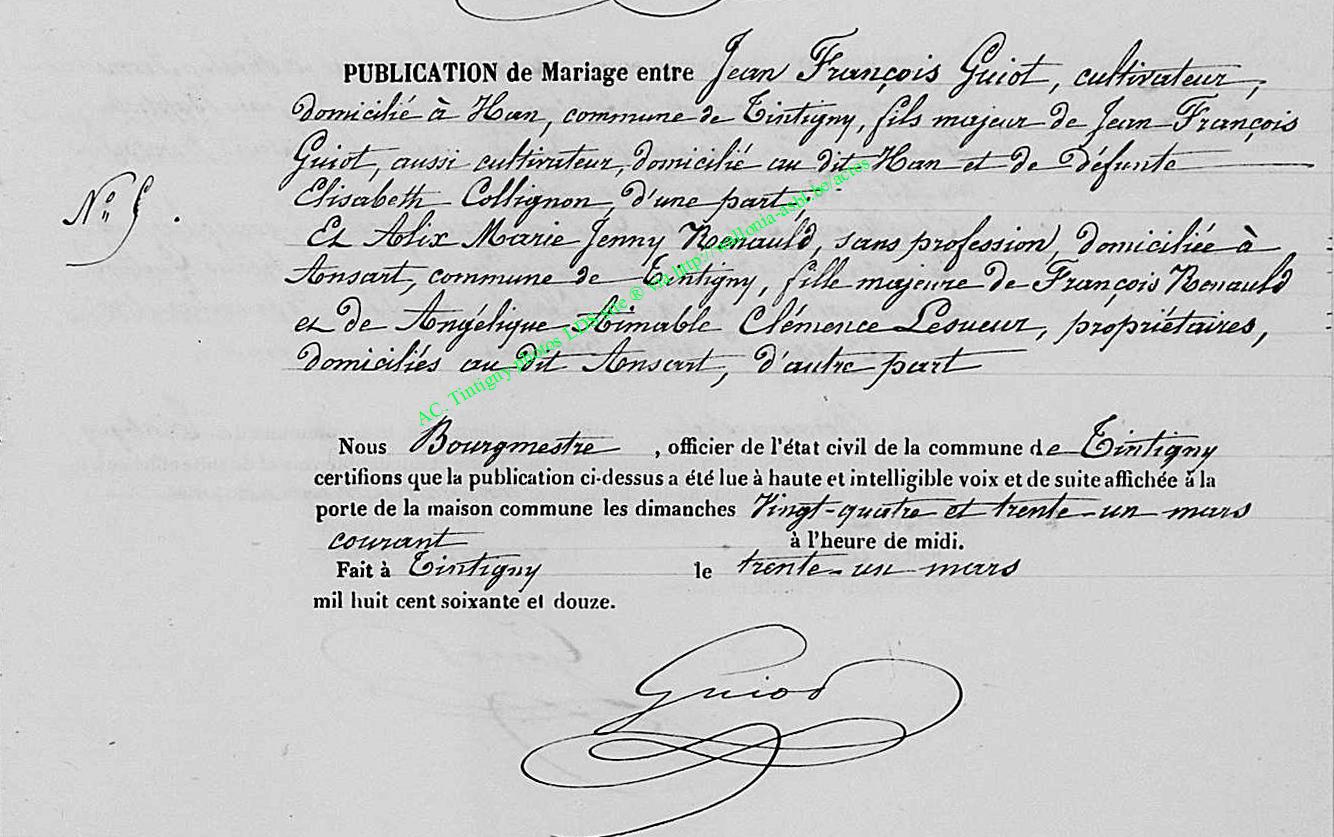 PUBLICATION de Mariage entre Jean François Guiot, cultivateur,
domicilié à Han, commune de Tintigny, fils majeur de Jean François
Guiot, aussi cultivateur, domicilié au dit Han et de défunte
Elisabeth Collignon, d'une part,
N° 5.
Et Alix Marie Jenny Renauld, sans profession, domiciliée à
Ansart, commune de Tintigny, fille majeure de François Renauld
et de Angélique Aimable Clémence Lesueur, propriétaires,
domiciliés au dit Ansart, d'autre part
AC. Tintigny photos LDS site ® via http://wallonia-asbl.be/actes
Nous Bourgmestre, officier de l'état civil de la commune de Tintigny
certifions que la publication ci-dessus a été lue à haute et intelligible voix et de suite affichée à la
porte de la maison commune les dimanches Vingt-quatre et trente-un mars
courant à l'heure de midi.
Fait à Tintigny le trente-un mars
mil huit cent soixante et douze.
Guiot